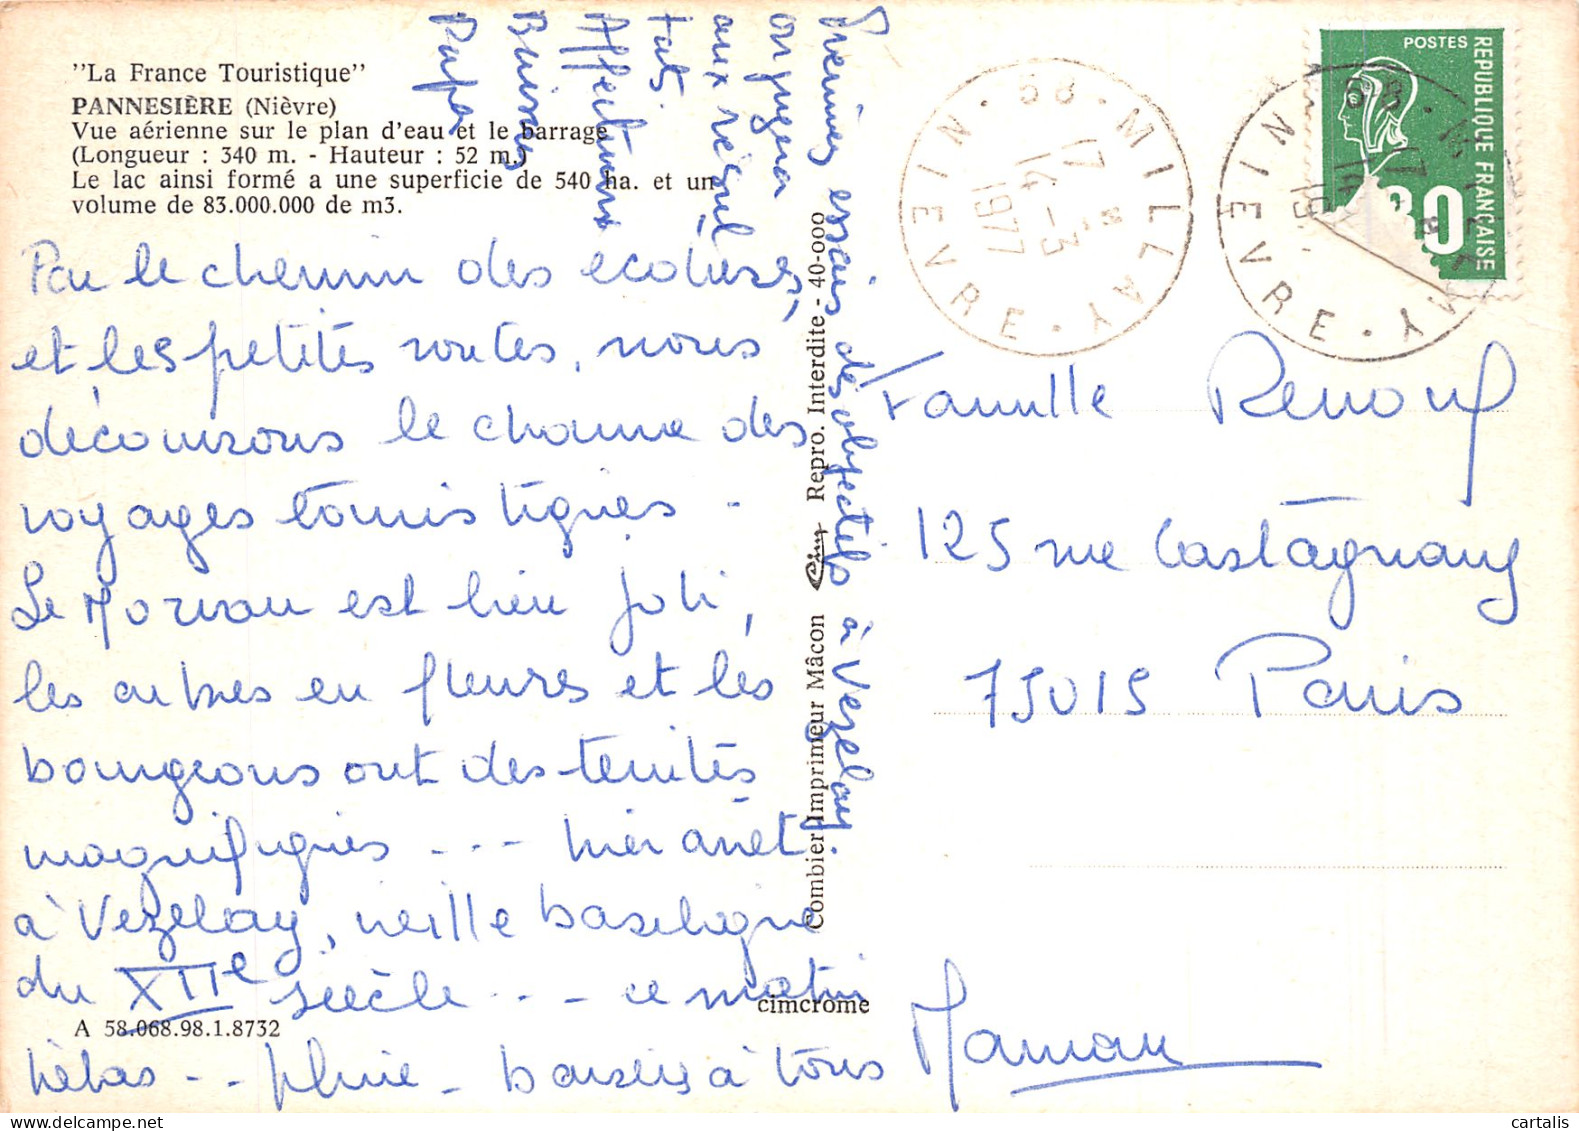 "La France Touristique"
PANNESIÈRE (Nièvre)
Vue aérienne sur le plan d'eau et le barrage
(Longueur : 340 m. - Hauteur : 52 m.)
Le lac ainsi formé a une superficie de 540 ha. et un
volume de 83.000.000 de m3.
Par le chemin des ecoliers,
et les petites routes, nous
découvrons le charme des
voyages touristiques -
Le Morvan est bien joli,
les arbres en fleurs et les
bourgeons ont des teintes
magnifiques - - - hier arrêt
à Vezelay, vieille basilique
du XIIe siècle - - - ce matin
hélas - - pluie - baisers à tous
Maman
Premiers essais des objectifs à Vezelay.
on verra
aux résul
tats.
Affectueux
Baisers
Papa
A 58.068.98.1.8732
Combier Imprimeur Mâcon Cim Repro. Interdite - 40-000
cimcrome
58 - MILLAY
NIEVRE
17 H
14 - 3
1977
58 - MILLAY
NIEVRE
17 H
14
19
POSTES
REPUBLIQUE FRANÇAISE
80
Famille Renouf
125 rue Castagnary
75015 Paris